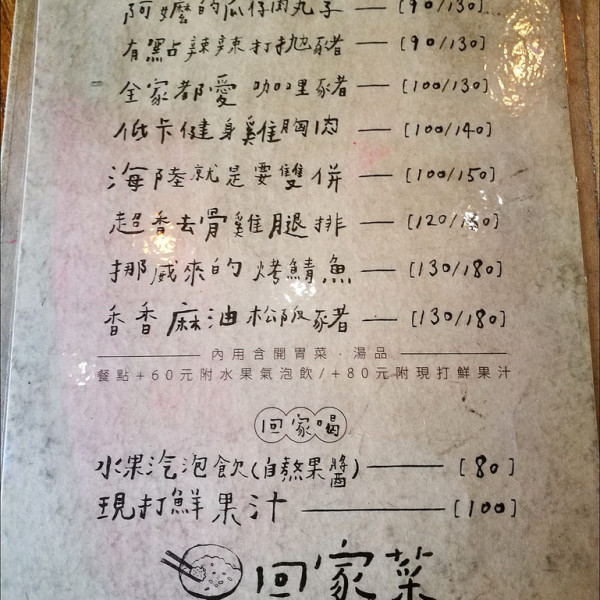 阿嬤的瓜仔肉丸子 — [90/130]
有點辣辣打拋豬 — [90/130]
全家都愛 咖哩豬 — [100/130]
低卡健身雞胸肉 — [100/140]
海陸就是要雙併 — [100/150]
超香去骨雞腿排 — [120/
挪威來的 烤鯖魚 — [130/180]
香香麻油松阪豬 — [130/180]
內用含開胃菜．湯品
餐點+60元附水果氣泡飲/+80元附現打鮮果汁
回家喝
水果汽泡飲(自熬果醬) — [80]
現打鮮果汁 — [100]
回家菜